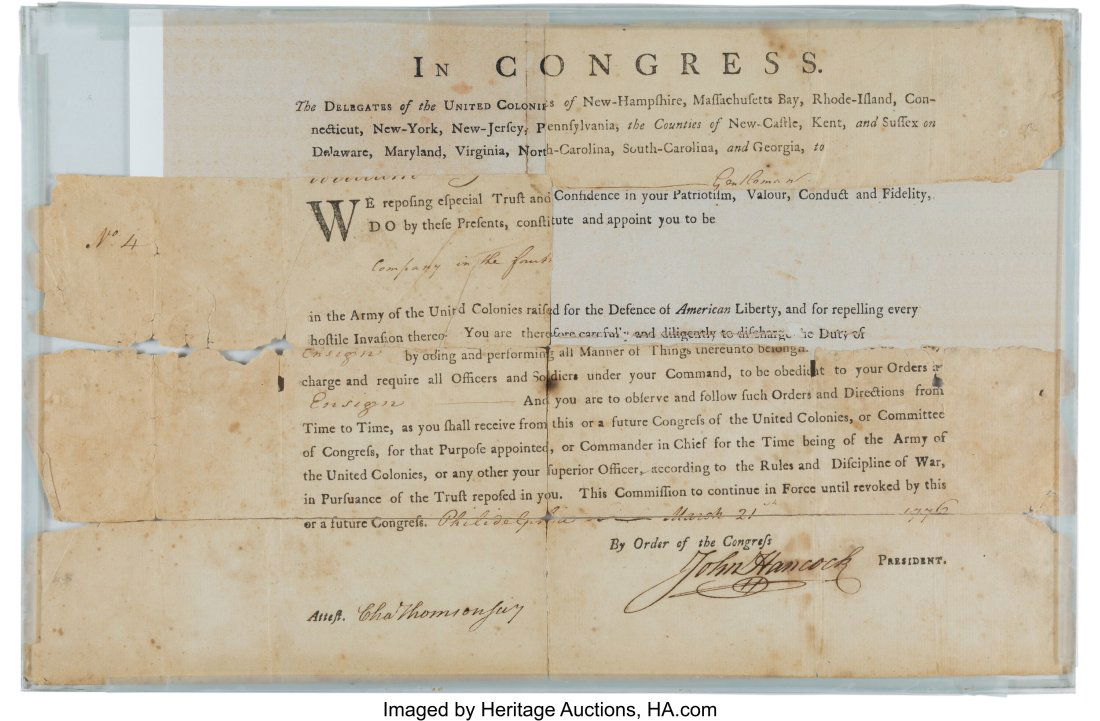 IN CONGRESS.
The DELEGATES of the UNITED COLONIES of New-Hampſhire, Maſſachuſetts Bay, Rhode-Iſland, Con-
necticut, New-York, New-Jerſey, Pennſylvania, the Counties of New-Caſtle, Kent, and Suſſex on
Delaware, Maryland, Virginia, North-Carolina, South-Carolina, and Georgia, to
Gentleman
WE repoſing eſpecial Truſt and Confidence in your Patriotiſm, Valour, Conduct and Fidelity,
DO by theſe Preſents, conſtitute and appoint you to be
No. 4
Company in the fourth
in the Army of the Unit'd Colonies raiſed for the Defence of American Liberty, and for repelling every
hoſtile Invaſion thereo You are therefore carefully and diligently to diſcharge he Duty of
Ensign by doing and performing all Manner of Things thereunto belong
charge and require all Officers and Soldiers under your Command, to be obedient to your Orders a
Ensign And you are to obſerve and follow ſuch Orders and Directions from
Time to Time, as you ſhall receive from this or a future Congreſs of the United Colonies, or Committee
of Congreſs, for that Purpoſe appointed, or Commander in Chief for the Time being of the Army of
the United Colonies, or any other your ſuperior Officer, according to the Rules and Diſcipline of War,
in Purſuance of the Truſt repoſed in you. This Commiſſion to continue in Force until revoked by this
or a future Congreſs. Philidelphia March 21st 1776
By Order of the Congreſs
John Hancock PRESIDENT.
Atteſt. Chas Thomson Secy
Imaged by Heritage Auctions, HA.com